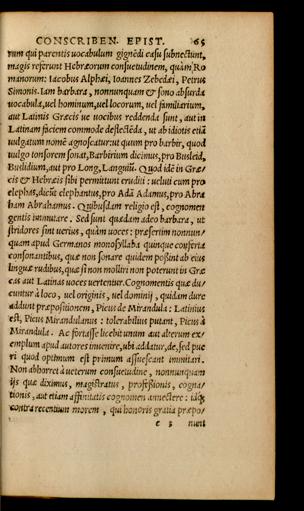 CONSCRIBEN. EPIST. 65
rum qui parentis uocabulum gignēdi casu subnectunt,
magis referunt Hebræorum consuetudinem, quàm Ro
manorum: Iacobus Alphæi, Ioannes Zebedæi, Petrus
Simonis. Iam barbara, nonnunquam & sono absurda
uocabula, uel hominum, uel locorum, uel familiarium,
aut Latinis Græcis ue uocibus reddenda sunt, aut in
Latinam faciem commode deflectēda, ut ab idiotis etiā
uulgatum nomē agnoscatur: ut quum pro barbir, quod
uulgo tonsorem sonat, Barbirium dicimus, pro Busleid,
Buslidium, aut pro Long, Languiū. Quod idē in Græ/
cis & Hebræis sibi permittunt eruditi: ueluti cum pro
elephas, dicūt elephantus, pro Adā Adamus, pro Abra
ham Abrahamus. Quibusdam religio est, cognomen
gentis immutare. Sed sunt quædam adeo barbara, ut
stridores sint uerius, quàm uoces: præsertim nonnun/
quam apud Germanos monosyllaba quinque conferta
consonantibus, quæ non sonare quidem possint ab eius
linguæ rudibus, quæ si non molliri non poterunt in Græ
cas aut Latinas uoces uertentur. Cognomentis quæ du/
cuntur à loco, uel originis, uel dominij, quidam dure
addunt præpositionem, Picus de Mirandula: Latinius
est, Picus Mirandulanus: tolerabilius putant, Picus à
Mirandula. Ac fortasse licebit unum aut alterum ex/
emplum apud autores inuenire, ubi addatur, de, sed pue
ri quod optimum est primum assuescant immitari.
Non abhorret à ueterum consuetudine, nonnunquam
ijs quæ diximus, magistratus, professionis, cogna/
tionis, aut etiam affinitatis cognomen annectere: idq́;
contra recentium morem, qui honoris gratia præpo/
e 3 nunt